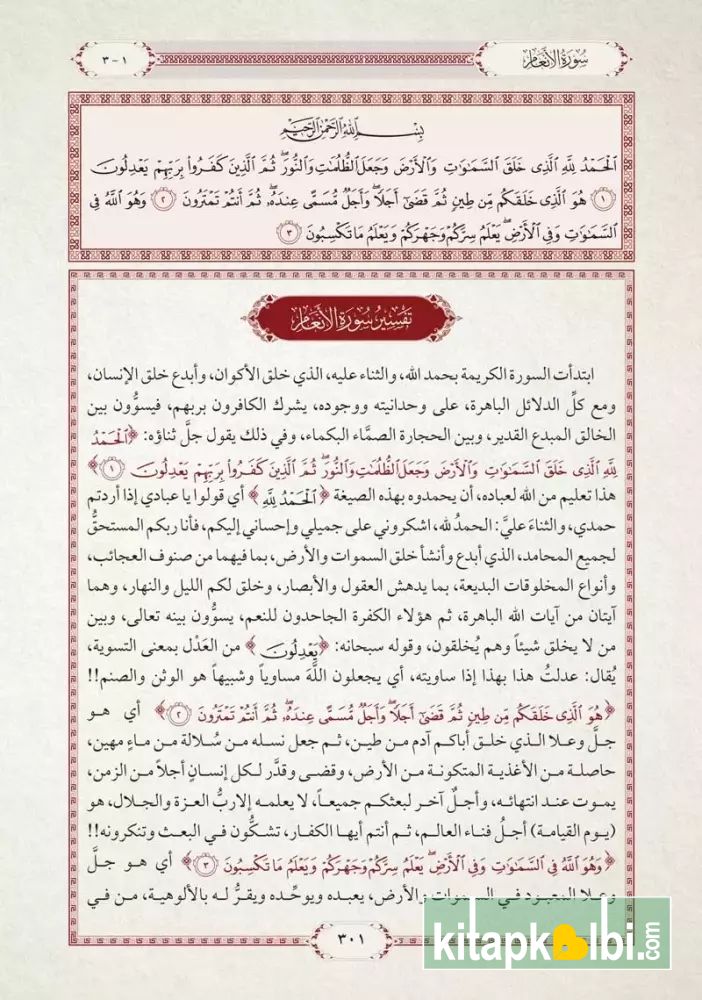 سُورَةُ الْأَنْعَامِ
١ - ٣
بِسْمِ اللَّهِ الرَّحْمَٰنِ الرَّحِيمِ
الْحَمْدُ لِلَّهِ الَّذِي خَلَقَ السَّمَٰوَٰتِ وَالْأَرْضَ وَجَعَلَ الظُّلُمَٰتِ وَالنُّورَ ۖ ثُمَّ الَّذِينَ كَفَرُوا بِرَبِّهِمْ يَعْدِلُونَ
١ هُوَ الَّذِي خَلَقَكُم مِّن طِينٍ ثُمَّ قَضَىٰ أَجَلًا ۖ وَأَجَلٌ مُّسَمًّى عِندَهُ ۖ ثُمَّ أَنتُمْ تَمْتَرُونَ ٢ وَهُوَ اللَّهُ فِي
السَّمَٰوَٰتِ وَفِي الْأَرْضِ ۖ يَعْلَمُ سِرَّكُمْ وَجَهْرَكُمْ وَيَعْلَمُ مَا تَكْسِبُونَ ٣
تَفْسِيرُ سُورَةِ الْأَنْعَامِ
ابتدأت السورة الكريمة بحمد الله، والثناء عليه، الذي خلق الأكوان، وأبدع خلق الإنسان،
ومع كلِّ الدلائل الباهرة، على وحدانيته ووجوده، يشرك الكافرون بربهم، فيسوُّون بين
الخالق المبدع القدير، وبين الحجارة الصمَّاء البكماء، وفي ذلك يقول جلَّ ثناؤه: ﴿الْحَمْدُ
لِلَّهِ الَّذِي خَلَقَ السَّمَٰوَٰتِ وَالْأَرْضَ وَجَعَلَ الظُّلُمَٰتِ وَالنُّورَ ۖ ثُمَّ الَّذِينَ كَفَرُوا بِرَبِّهِمْ يَعْدِلُونَ ١﴾
هذا تعليم من الله لعباده، أن يحمدوه بهذه الصيغة ﴿الْحَمْدُ لِلَّهِ﴾ أي قولوا يا عبادي إذا أردتم
حمدي، والثناءَ عليَّ: الحمدُ لله، اشكروني على جميلي وإحساني إليكم، فأنا ربكم المستحقُّ
لجميع المحامد، الذي أبدع وأنشأ خلق السموات والأرض، بما فيهما من صنوف العجائب،
وأنواع المخلوقات البديعة، بما يدهش العقول والأبصار، وخلق لكم الليل والنهار، وهما
آيتان من آيات الله الباهرة، ثم هؤلاء الكفرة الجاحدون للنعم، يسوُّون بينه تعالى، وبين
من لا يخلق شيئاً وهم يُخلقون، وقوله سبحانه: ﴿يَعْدِلُونَ﴾ من العَدْل بمعنى التسوية،
يُقال: عدلتُ هذا بهذا إذا ساويته، أي يجعلون اللَّهَ مساوياً وشبيهاً هو الوثن والصنم!!
﴿هُوَ الَّذِي خَلَقَكُم مِّن طِينٍ ثُمَّ قَضَىٰ أَجَلًا ۖ وَأَجَلٌ مُّسَمًّى عِندَهُ ۖ ثُمَّ أَنتُمْ تَمْتَرُونَ ٢﴾ أي هو
جلَّ وعلا الذي خلق أباكم آدم من طين، ثم جعل نسله من سُلالة من ماءٍ مهين،
حاصلة من الأغذية المتكونة من الأرض، وقضى وقدَّر لكل إنسانٍ أجلاً من الزمن،
يموت عند انتهائه، وأجلٌ آخر لبعثكم جميعاً، لا يعلمه إلا ربُّ العزة والجلال، هو
(يوم القيامة) أجلُ فناء العالم، ثم أنتم أيها الكفار، تشكُّون في البعث وتنكرونه!!
﴿وَهُوَ اللَّهُ فِي السَّمَٰوَٰتِ وَفِي الْأَرْضِ ۖ يَعْلَمُ سِرَّكُمْ وَجَهْرَكُمْ وَيَعْلَمُ مَا تَكْسِبُونَ ٣﴾ أي هو جلَّ
وعلا المعبود في السموات والأرض، يعبده ويوحِّده ويقرُّ له بالألوهية، من في
٣٠١
kitapkalbi.com